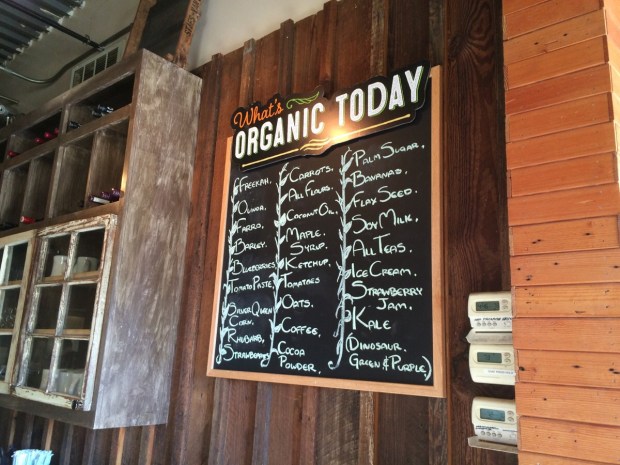 What's
ORGANIC TODAY
FREEKAH,
QUINOA,
FARRO,
BARLEY,
BLUEBERRIES,
TOMATO PASTE,
SILVER QUEEN
CORN,
RHUBARB,
STRAWBERRIES
CARROTS,
ALL FLOURS,
COCONUT OIL,
MAPLE
SYRUP,
KETCHUP,
TOMATOES
OATS,
COFFEE,
COCOA
POWDER,
PALM SUGAR,
BANANAS,
FLAX SEED,
SOY MILK,
ALL TEAS,
ICE CREAM,
STRAWBERRY
JAM,
KALE
(DINOSAUR,
GREEN & PURPLE)